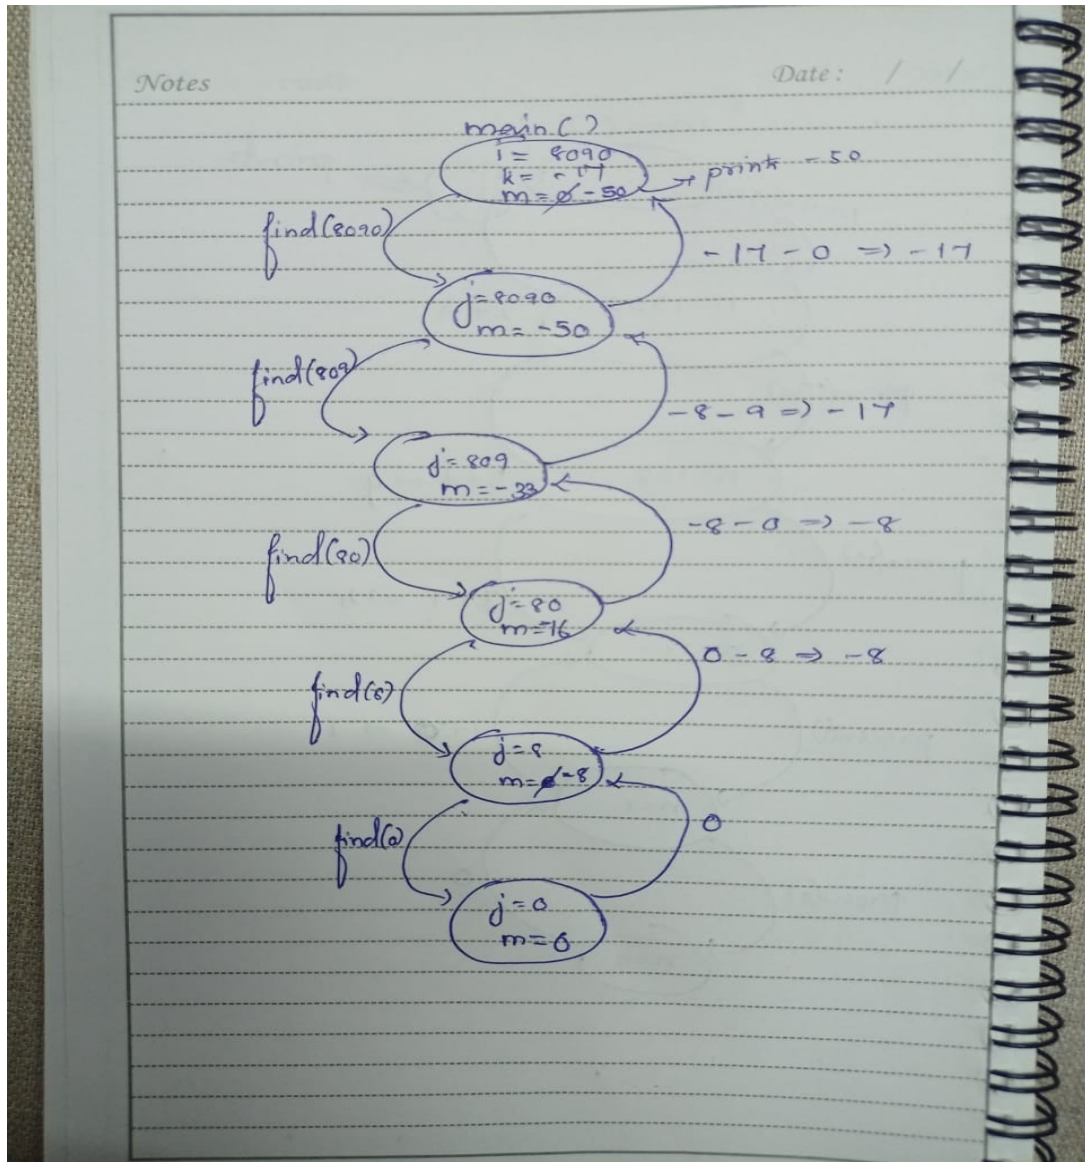 Notes
Date: / /
main()
i = 8090
k = -17
m = 0 -50
print -50
find(8090)
-17 - 0 => -17
j = 8090
m = -50
find(809)
-8 - 9 => -17
j = 809
m = -33
find(80)
-8 - 0 => -8
j = 80
m = -16
find(8)
0 - 8 => -8
j = 8
m = 0 -8
find(0)
0
j = 0
m = 0